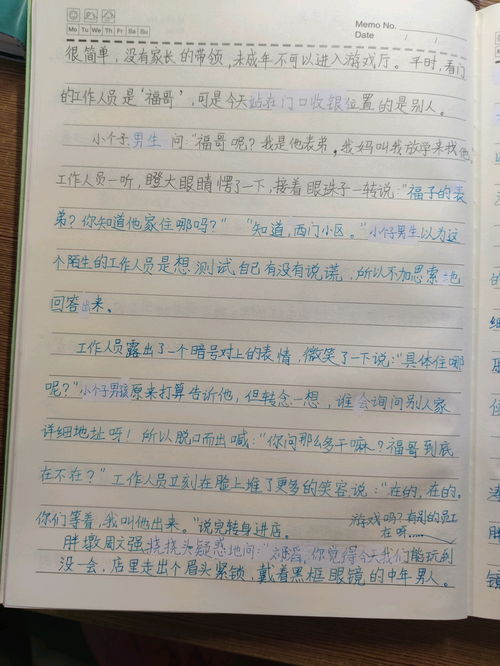 Memo No.
Mo Tu We Th Fr Sa Su
Date / /
很简单，没有家长的带领，未成年不可以进入游戏厅。平时，看门
的工作人员是“福哥”，可是今天站在门口收银位置的是别人。
小个子男生问：“福哥呢？我是他表弟，我妈叫我放学来找他。”
工作人员一听，瞪大眼睛愣了一下，接着眼珠子一转说：“福子的表
弟？你知道他家住哪吗？”“知道，西门小区。”小个子男生以为这
个陌生的工作人员是想测试自己有没有说谎，所以不加思索地
回答出来。
工作人员露出了一个暗号对上的表情，微笑了一下说：“具体住哪
呢？”小个子男孩原来打算告诉他，但转念一想，谁会询问别人家
详细地址呀！所以脱口而出喊：“你问那么多干嘛？福哥到底
在不在？”工作人员立刻在脸上堆了更多的笑容说：“在的，在的。
你们等着，我叫他出来。”说完转身进店。
胖墩周文强挠挠头疑惑地问：“，你觉得今天我们能玩到
游戏吗？有别的员工
在呀……
没一会，店里走出个眉头紧锁，戴着黑框眼镜的中年男人。